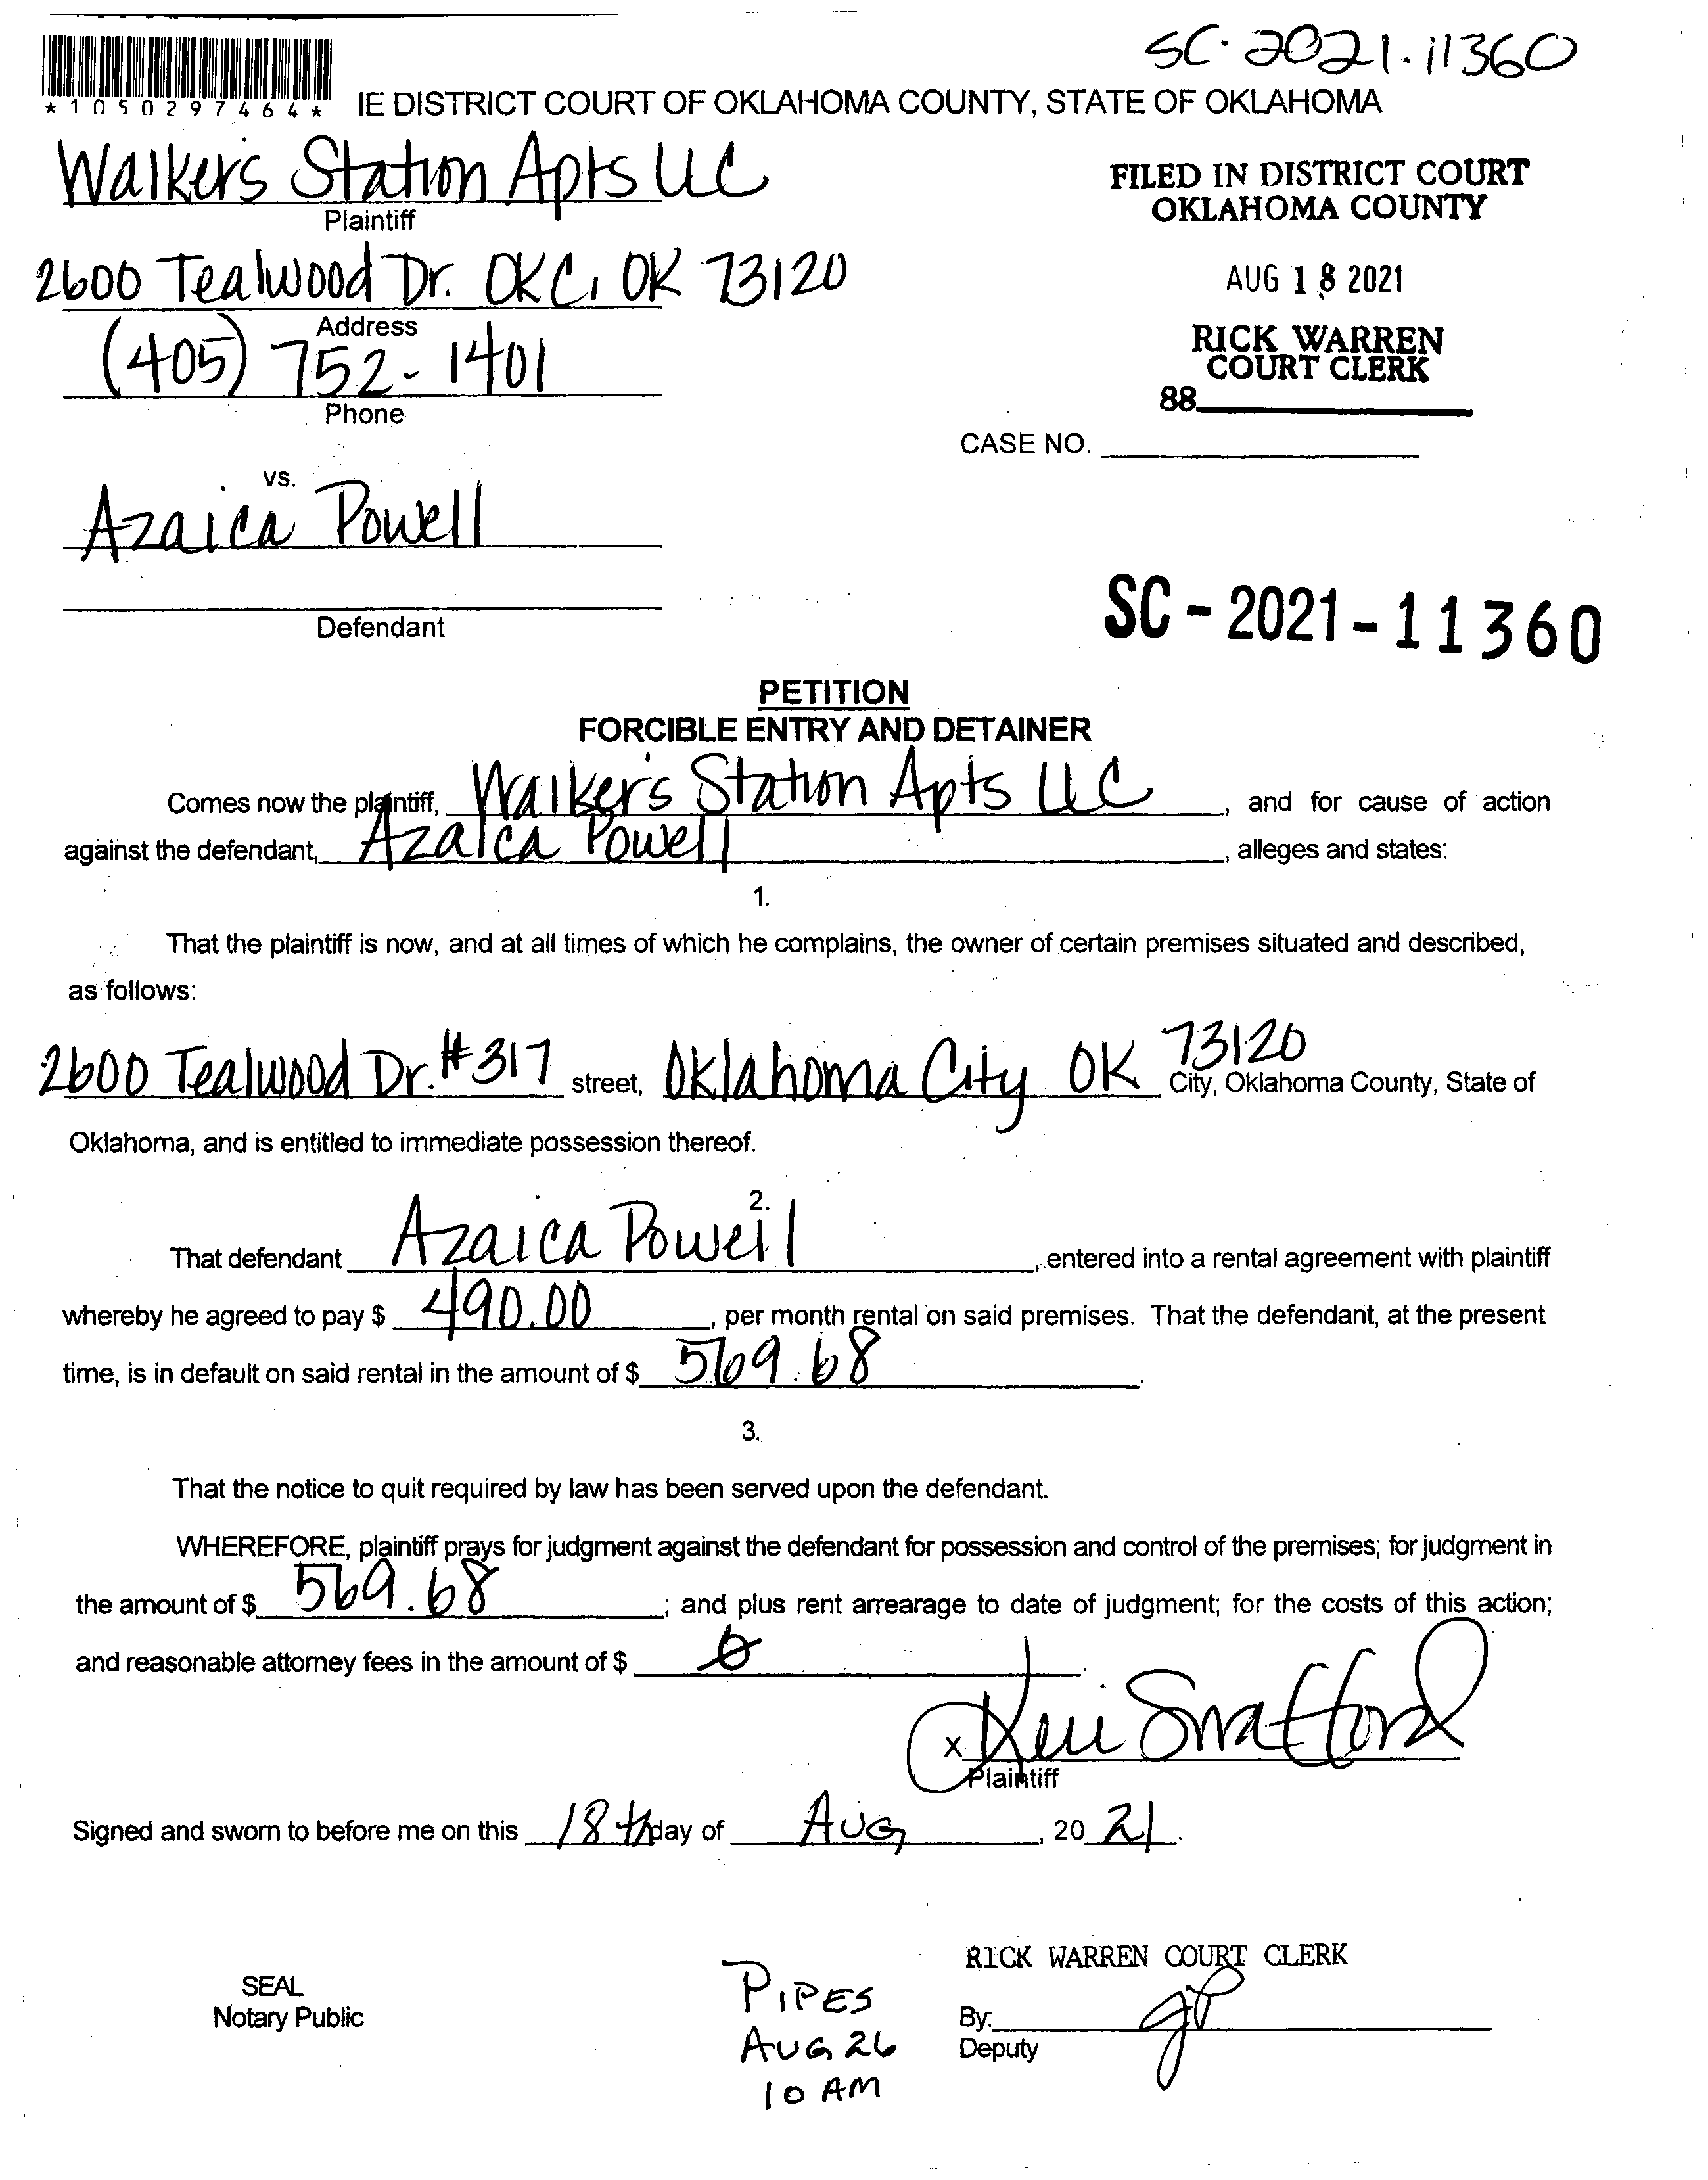 SC-2021-11360
*1050297464*
IE DISTRICT COURT OF OKLAHOMA COUNTY, STATE OF OKLAHOMA
Walkers Station Apts LLC
Plaintiff
FILED IN DISTRICT COURT
OKLAHOMA COUNTY
2600 Tealwood Dr. OKC, OK 73120
Address
AUG 18 2021
(405) 752-1401
Phone
RICK WARREN
COURT CLERK
88
CASE NO.
vs.
Azaica Powell
Defendant
SC-2021-11360
PETITION
FORCIBLE ENTRY AND DETAINER
Comes now the plaintiff, Walker's Station Apts LLC, and for cause of action
against the defendant, Azaica Powell, alleges and states:
1.
That the plaintiff is now, and at all times of which he complains, the owner of certain premises situated and described,
as follows:
2600 Tealwood Dr. #317 street, Oklahoma City OK 73120 City, Oklahoma County, State of
Oklahoma, and is entitled to immediate possession thereof.
2.
That defendant Azaica Powell, entered into a rental agreement with plaintiff
whereby he agreed to pay $ 490.00, per month rental on said premises. That the defendant, at the present
time, is in default on said rental in the amount of $ 569.68.
3.
That the notice to quit required by law has been served upon the defendant.
WHEREFORE, plaintiff prays for judgment against the defendant for possession and control of the premises; for judgment in
the amount of $ 569.68; and plus rent arrearage to date of judgment; for the costs of this action;
and reasonable attorney fees in the amount of $ 0.
x
Plaintiff
Signed and sworn to before me on this 18th day of Aug, 20 21.
SEAL
Notary Public
PIPES
AUG 26
10 AM
RICK WARREN COURT CLERK
By:
Deputy